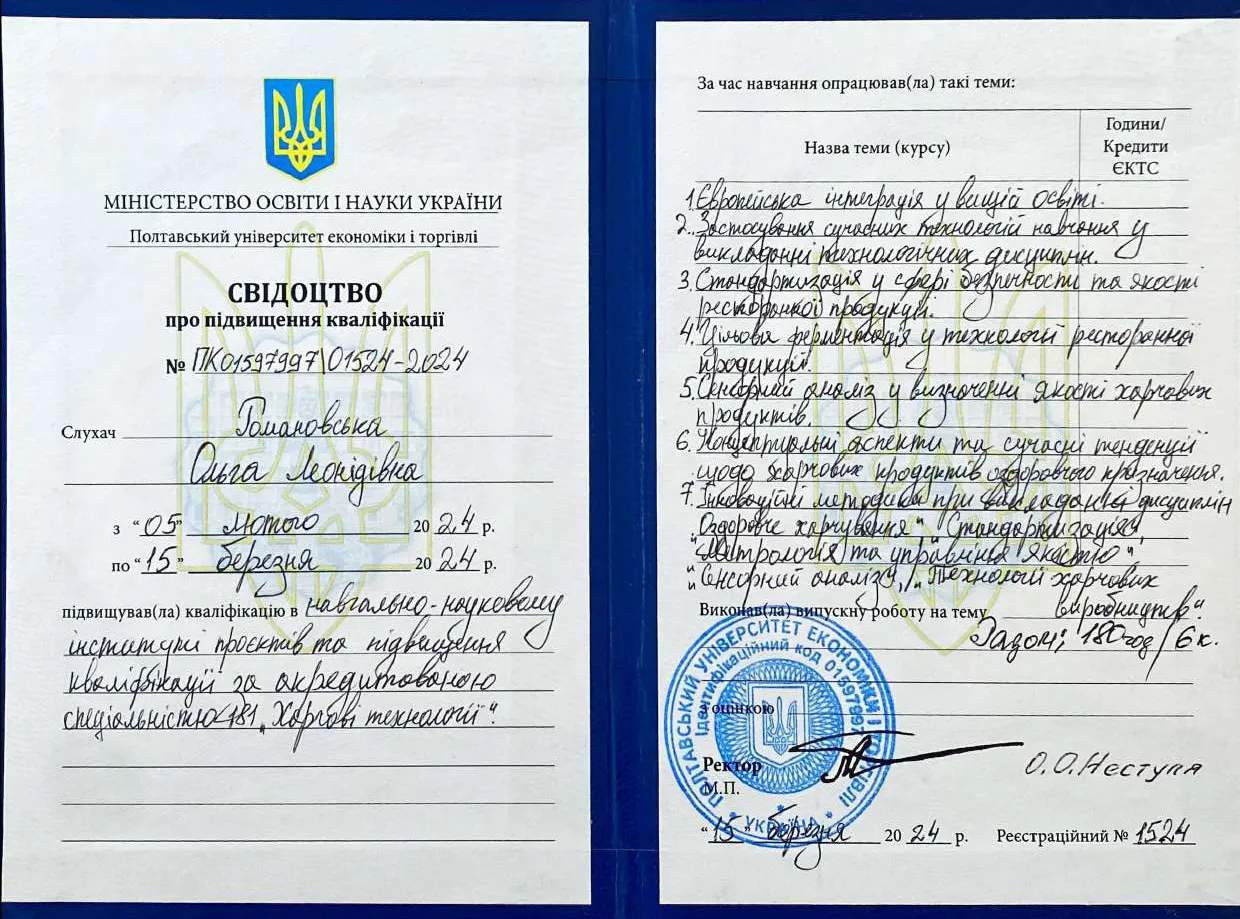 МІНІСТЕРСТВО ОСВІТИ І НАУКИ УКРАЇНИ
Полтавський університет економіки і торгівлі
СВІДОЦТВО
про підвищення кваліфікації
№ ПК01597997\01524-2024
Слухач Романовська
Ольга Леонідівна
з "05" лютого 2024 р.
по "15" березня 2024 р.
підвищував(ла) кваліфікацію в навчально-науковому
інституті проєктів та підвищення
кваліфікації за акредитованою
спеціальністю 181 „Харчові технології".
За час навчання опрацював(ла) такі теми:
Назва теми (курсу)
Години/
Кредити
ЄКТС
1. Європейська інтеграція у вищій освіті.
2. Застосування сучасних технологій навчання у
викладанні технологічних дисциплін.
3. Стандартизація у сфері безпечності та якості
ресторанної продукції.
4. Цільова ферментація у технології ресторанної
продукції.
5. Сенсорний аналіз у визначенні якості харчових
продуктів.
6. Концептуальні аспекти та сучасні тенденції
щодо харчових продуктів оздоровчого призначення.
7. Інноваційні методики при викладанні дисциплін
„Оздоровче харчування", „Стандартизація",
„Метрологія та управління якістю",
„Сенсорний аналіз", „Технології харчових
виробництв".
Виконав(ла) випускну роботу на тему
Разом: 180 год/6 к.
з оцінкою
Ректор
О.О.Нестуля
М.П.
"15" березня 2024 р. Реєстраційний № 1524
ПОЛТАВСЬКИЙ УНІВЕРСИТЕТ ЕКОНОМІКИ І ТОРГІВЛІ
Ідентифікаційний код 01597997
* УКРАЇНА *